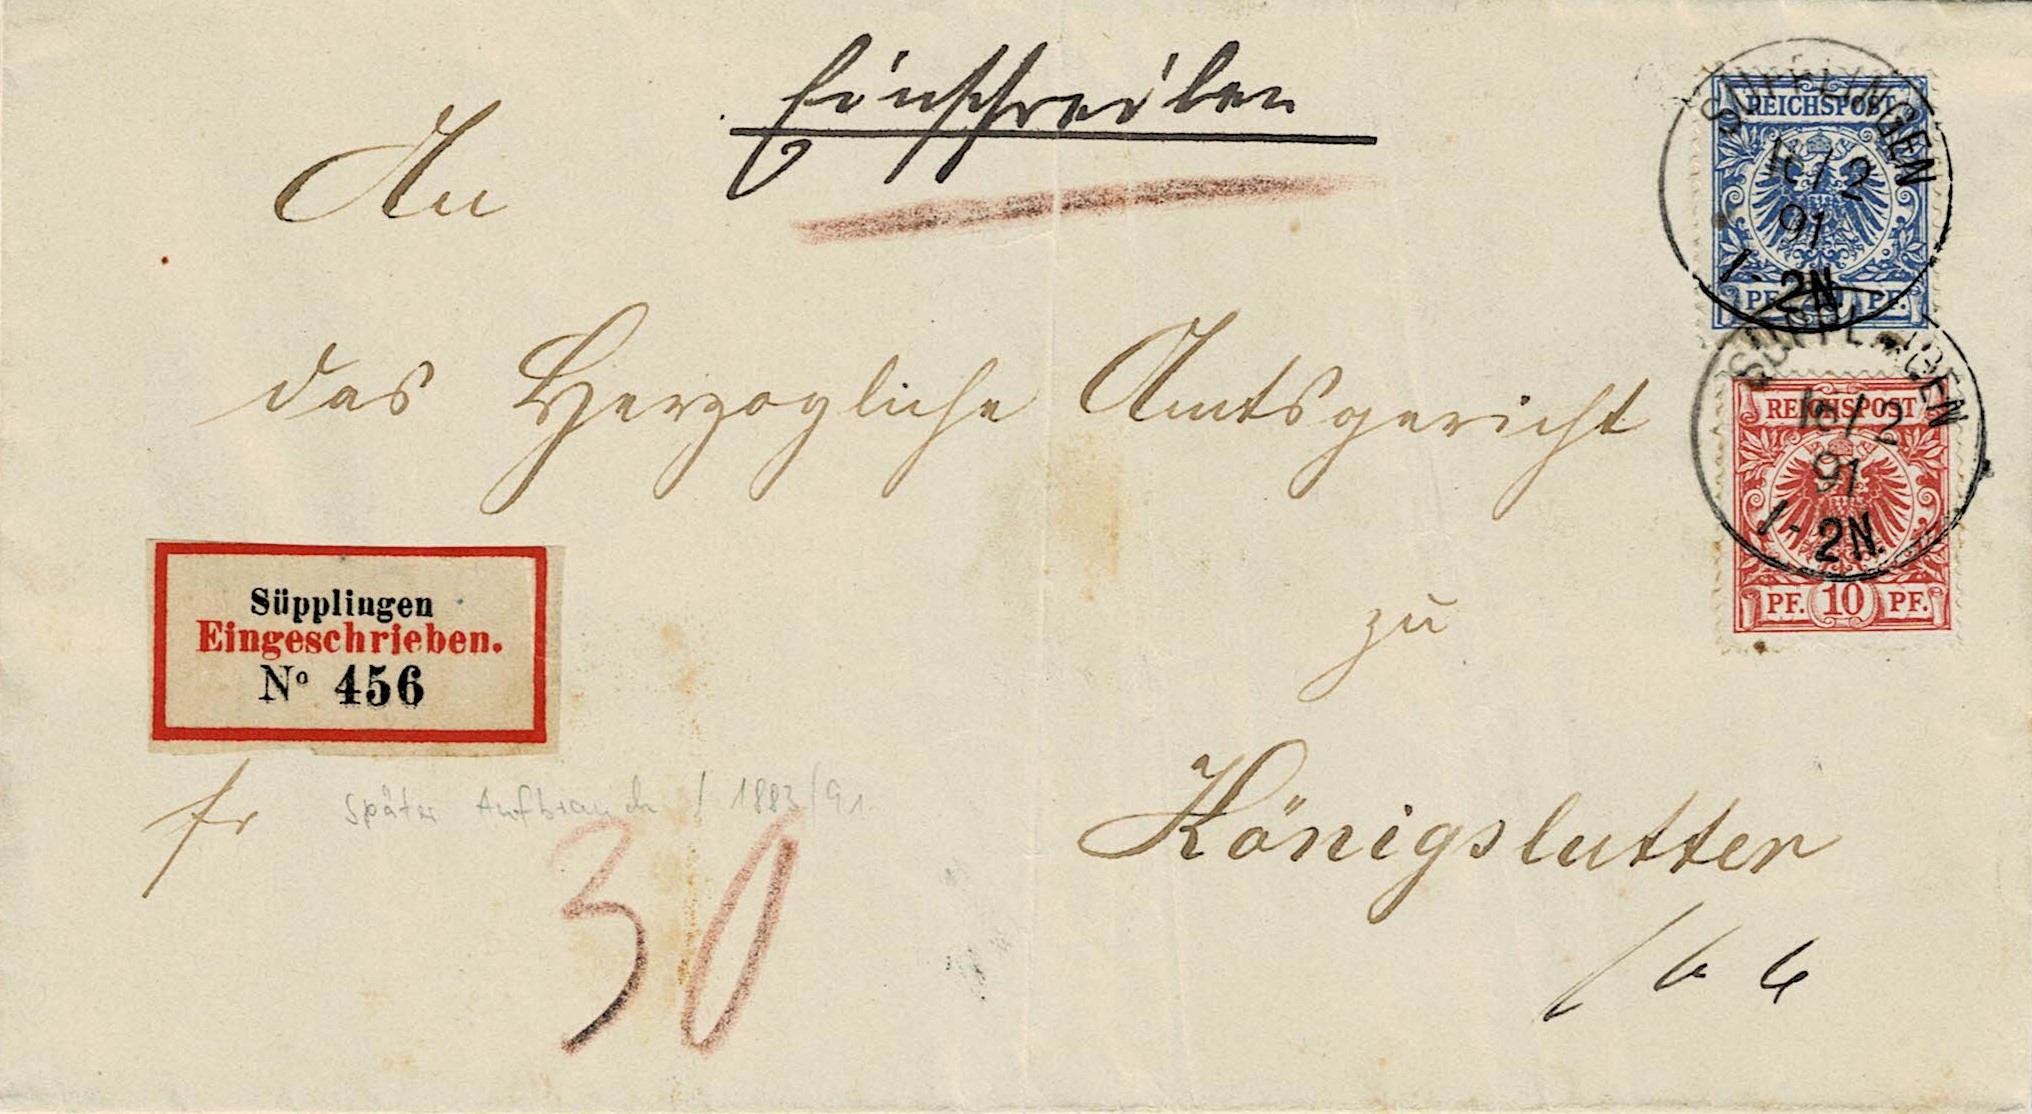 Einschreiben
An
das Herzogliche Amtsgericht
zu
Königslutter
Süpplingen
Eingeschrieben.
Nº 456
fr
später Aufbrauch / 1883/91
30
REICHSPOST
PF. PF.
SÜPPLINGEN
/2
91
1-2N.
REICHSPOST
PF. 10 PF.
SÜPPLINGEN
/2
91
1-2N.